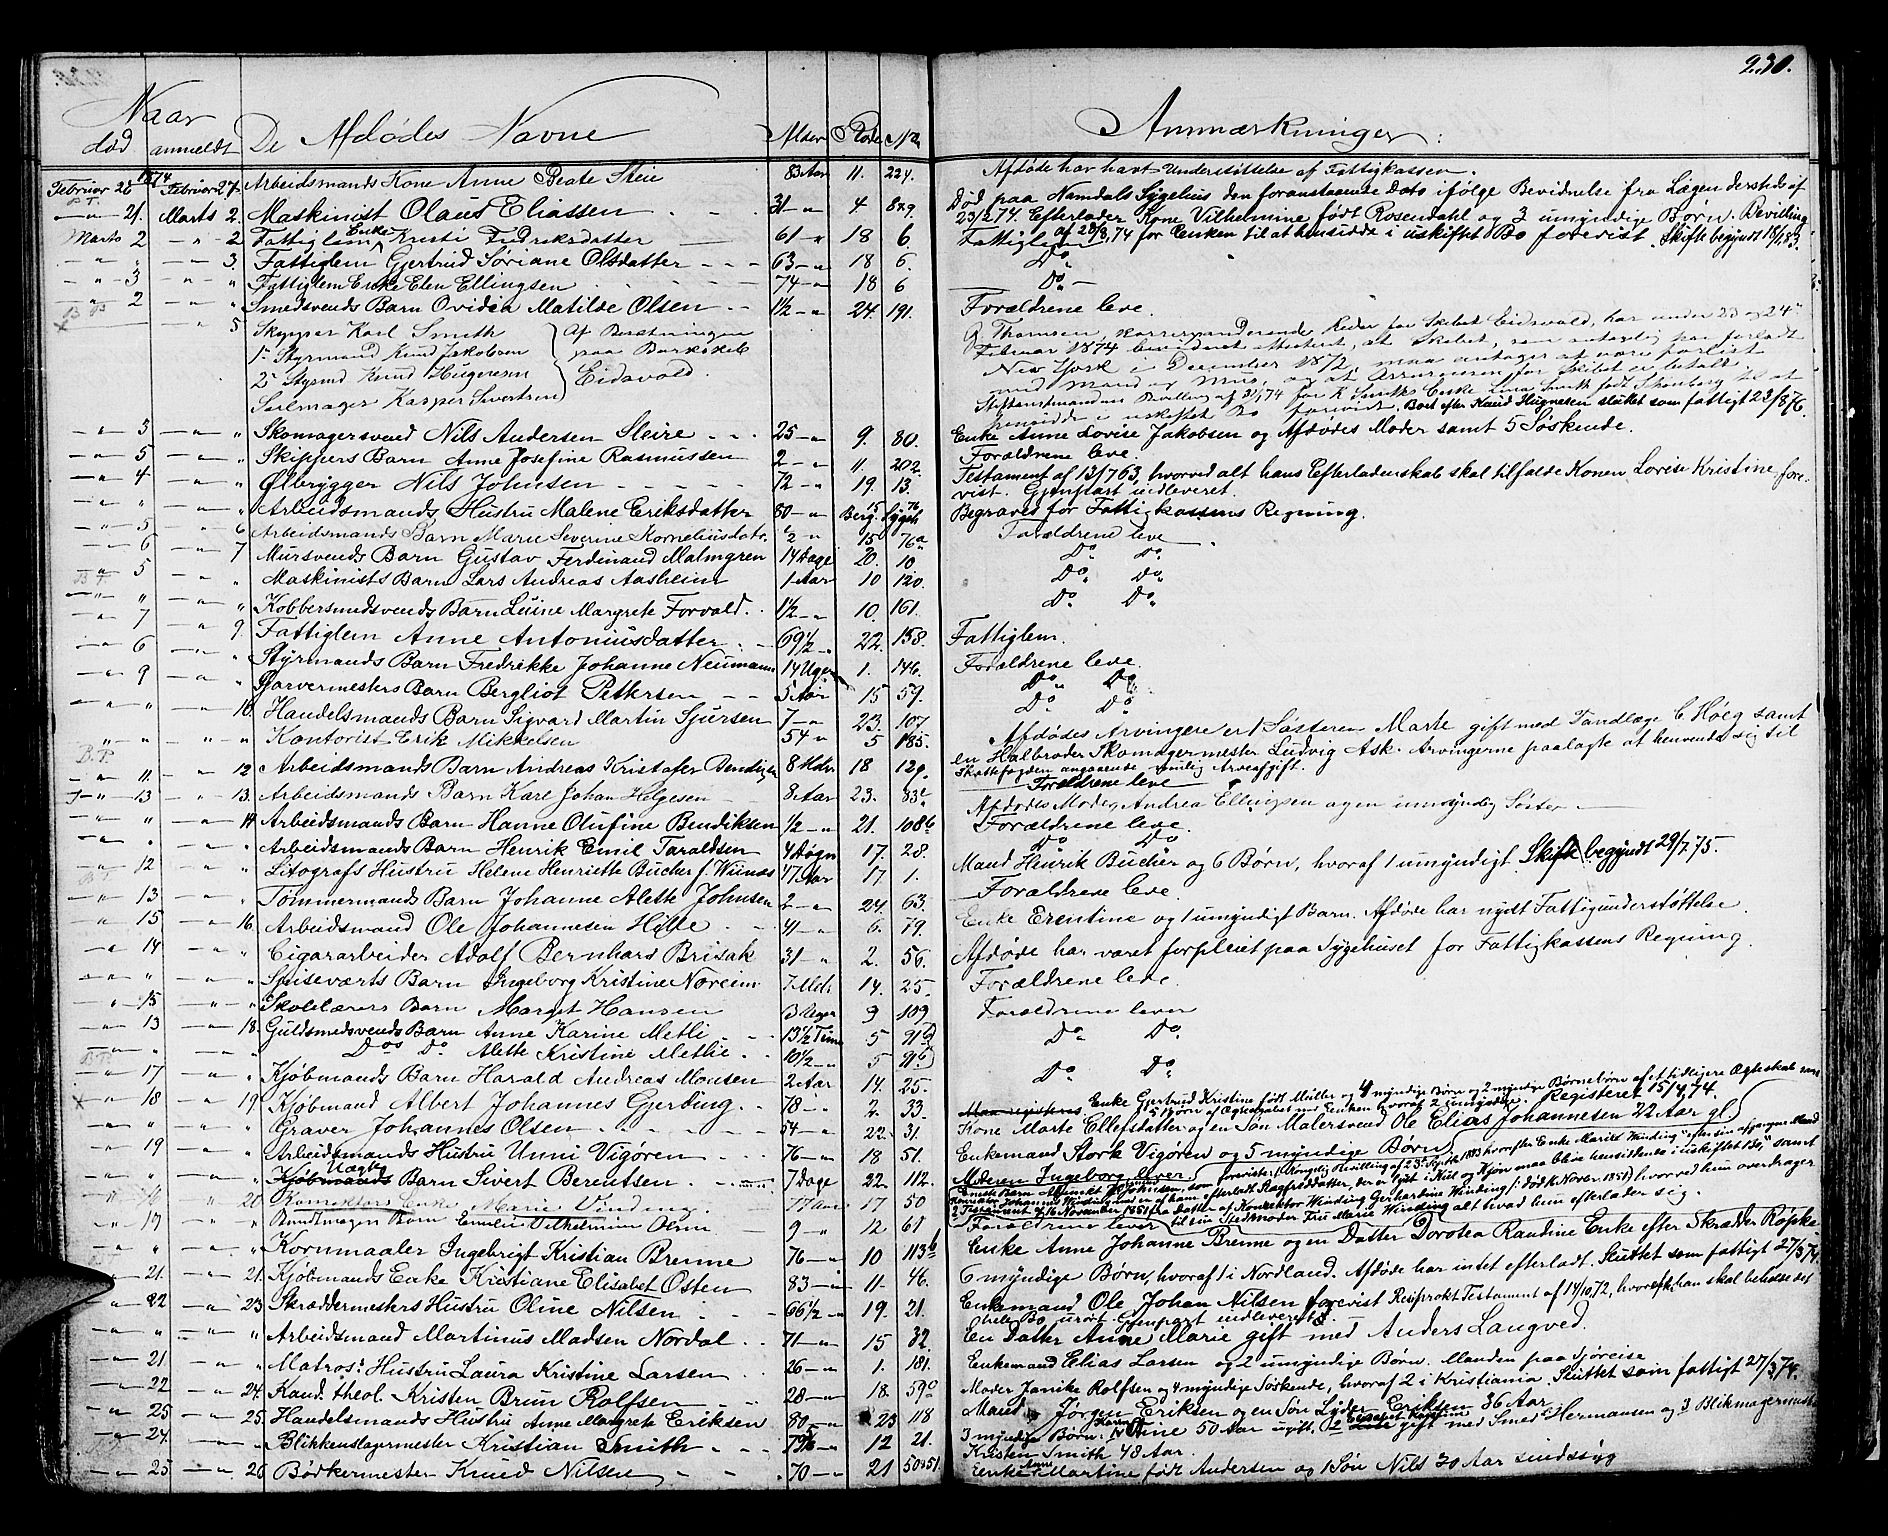 230.
Naar
død anmeldt De Afdødes Navne Alder Rode No Anmærkninger:
1874
Februar 26 Februar 27. Arbeidsmands Kone Anne Beate Steie 83 Aar 11. 224. Afdøde har havt Understøttelse af Fattigkassen.
P.T.
— " — 21. Marts 2. Maskinist Olaus Eliassen 31 — " 4 829. Død paa Namdals Sygehus den foranstaaende Dato ifølge Bevidnelse fra Lægen dersteds af
23/2 74. Efterlader Kone Vilhelmine født Rosendahl og 3 umyndige Børn. Bevilling
af 28/8, 74 for Enken til at hensidde i uskiftet Bo forevist. Skifte begyndt 18/1 83.
Marts 2 — " — 2 Fattiglem Enke Kristi Fredriksdatter 61 — " 18 6. Fattiglem
— " " 3. Fattiglem Gjertrud Soriane Olsdatter 63 — " 18 6. Do
— " — 3 — " " Fattiglem Enke Elen Ellingsen 74 — " 18 6 Do —
— " — 2 " Smedsvends Barn Ovidia Matilde Olsen 1 1/2 — " 24. 191. Forældrene leve.
x " 5 Skipper Karl Smith } Af Besætningen
1ste Styrmand Knud Jakobsen paa Barkskib
2den Styrmd Knud Hugnesen Eidsvold.
Seilmager Kasper Sivertsen
Thomsen, korresponderende Reder for Skibet Eidsvold, har under 23 og 24de
Februar 1874 attesteret, at Skibet, som forlod
New York i December 1872, maa antages at være forlist
med Mand og Mus, og at Assurancen for Skibet er betalt.
Stiftamtmandens Bevilling af 31/7 74 for K Smiths Enke født Stenberg til at
hensidde i uskiftet Bo forevist. Boet efter Knud Hugnesen sluttet som fattigt 23/8 76.
— " — 5 — " — " Skomagersvend Nils Andersen Sleire 25 — " 9. 80. Enke Anne Lovise Jakobsen og Afdødes Moder samt 5 Søskende.
— " — 5 — " — " Skippers Barn Anne Josefine Rasmussen 2 — " 11. 202. Forældrene leve.
— " — 4 — " — " Ølbrygger Nils Johnsen 72 — " 19. 13. Testament af 13/7 63, hvorved alt hans Efterladenskab skal tilfalde Konen Lovise Kristine fore-
vist. Gjenpart indleveret.
— " " — " — " Arbeidsmands Hustru Malene Eriksdatter 80 — " Berg. Sygeh Begravet for Fattigkassens Regning.
— " — 5 — " — 6 Arbeidsmands Barn Marie Severine Korneliusdatr. 2 " 15 76a Forældrene leve.
— " — 6 — " — 7 Mursvends Barn Gustav Ferdinand Malmgren 14 Dage 20. 10 Do Do
— " — 5 — " — " Maskinists Barn Lars Andreas Aasheim 1 Aar 10 120. Do Do
— " — " — " — " Kobbersmedsvends Barn Luine Margrete Forvald. 1 1/2 — " 10. 161. Do Do
— " — 7 — " — 9. Fattiglem Anne Antoniusdatter 69 1/2 — " 22. 158. Fattiglem.
— " — 6 — " — " Styrmands Barn Fredrikke Johanne Neumann 14 Uger 1. 146. Forældrene leve.
— " — 9 — " — " Garvermesters Barn Bergliot Pettersen 5 Aar 15 59. Do Do
— " — " — " — 10. Handelsmands Barn Sigvard Martin Sjursen 7 — " 23. 107. Do Do
" " " — " Kontorist Erik Mikkelsen 54 " 5 185. Afdødes Arvinger er 1 Søster Marte gift med Tandlæge C Høeg samt
en Halbroder Skomagermester Ludvig Ask. Arvingerne paalagte at henvende sig til
Skattefogden angaaende mulig Arveafgift.
— " — 11. — " — 12 Arbeidsmands Barn Andreas Kristofer Bendigsen 8 Mdr. 18 129. Forældrene leve
— " — 13 — " — 13. Arbeidsmands Barn Karl Johan Helgesen 8 Aar 23. 83c Afdødes Moder Andrea Ellingsen og en umyndig Søster —
— " — " — " — 14. Arbeidsmands Barn Hanne Olufine Bendiksen 1/2 — " 21. 108b Forældrene leve.
— " — " — " — " Arbeidsmands Barn Henrik Emil Taraldsen 4 Døgn 17. 28. Do Do
— " — 12 — " — " Litografs Hustru Helene Henriette Bucher f. Wiinæs 47 Aar 17 1. Mand Henrik Bucher og 6 Børn, hvoraf 1 umyndigt. Skifte begyndt 29/7. 75.
— " — 13 — " — " Tømmermands Barn Johanne Alette Johnsen 2 — " 24. 63 Forældrene leve.
— " — 15 — " — 16. Arbeidsmand Ole Johannesen Hille 41 — " 6. 79. Enke Erentine og 1 umyndigt Barn. Afdøde har nydt Fattigunderstøttelse.
— " — 14 — " — " Cigararbeider Adolf Bernhard Brisak 31 " 2. 56. Afdøde har været forpleiet paa Sygehuset for Fattigkassens Regning.
— " — " — " — " Spiseværts Barn Ingeborg Kristine Noreim 7 Mdr. 14. 25. Forældrene leve.
— " — 15 — " — " Skolelærers Barn Margit Hansen 3 Uger 9 109 Forældrene lever
— " — 13 — " — 18. Guldsmedsvends Barn Anne Karine Metli 13 1/2 Time 5 91b Do Do
— " — " — " — " Dos Do Alette Kristine Metlie 10 1/2 — " 5 91b
— " — 17 — " — " Kjøbmands Barn Harald Andreas Monsen 2 Aar 14. 25. Do Do
x — " — 18 — " — 19. Kjøbmand Albert Johannes Gjerding 78 — " 2. 33. Enke Gjertrud Kristine født Müller og 4 myndige Børn og 2 myndige Børnebørn af et tidligere Ægteskab samt
5 Børn af Ægteskabet med Enken hvoraf 2 umyndige. Registeret 15/4, 74.
— " — " — " — " Graver Johannes Olsen 54 — " 22. 31. Kone Marte Ellefsdatter og en Søn Malersvend Ole Elias Johannesen 22 Aar gl.
— " — 19 — " — " Arbeidsmands Hustru Unni Vigøren 76 — " 18 51. Enkemand Stork Vigøren og 5 myndige Børn
— " — " — " — " Kjøbmands Vægtrs Barn Sivert Berentsen 7 Dage 22 112. Moderen Ingeborg lever
— " — " — " — 20. Konrektors Enke Marie Vinding. 77 Aar 17 50
af 16 November 1851 fra Datter af Konrektor Winding Gerhardine Winding (: død i Novbr. 1851) hvorved hun overdrager
til sin Stedmoder Fru Marie Winding alt hvad hun efterlader sig.
— " — 17 — " — " Bundtmager Barn Emilie Vilhelmine Olsen 9 — " 12 61 Forældrene lever
— " — " — " — " Kornmaaler Ingebrigt Kristian Brenne 76 — " 10 113b Enke Anne Johanne Brenne og en Datter Dorotea Randine Enke efter Skrædder Røpke
— " — 21. — " — 21. Kjøbmands Enke Kristiane Elisabet Osten 83 — " 11. 46. 6 myndige Børn, hvoraf 1 i Nordland. Afdøde har intet efterladt. Sluttet som fattigt 27/3 74.
— " — 22 — " — 23. Skræddermesters Hustru Oline Nilsen 66 1/2 — " 19. 21. Enkemand Ole Johan Nilsen forevist Resiprokt Testament af 14/10, 72, hvorefter han skal beholde det
hele Bo urørt. Gjenpart indleveret.
— " — " — " — " Arbeidsmand Martinus Madsen Nordal 71 — " 15 32. En Datter Anne Marie gift med Anders Langved.
— " — 21 — " — " Matros: Hustru Laura Kristine Larsen 26 — " 1. 181. Enkemand Elias Larsen og 2 umyndige Børn. Manden paa Sjøreise
— " — 22 — " — 24. Kand. theol. Kristen Brun Rolfsen 28 — " 18. 59c Moder Janike Rolfsen og 4 myndige Søskende, hvoraf 2 i Kristiania. Sluttet som fattigt 27/3 74.
— " — 25 — " — 25. Handelsmands Hustru Anne Margrete Eriksen 80 — " 23 118 Mand Jørgen Eriksen og en Søn Lyder Eriksen 36 Aar.
— " — 24. — " — " Blikkenslagermester Kristian Smith — " 12 21. 3 myndige Børn: 1 Hanna Oline 50 Aar ugift. 2 gift med Smed Hermansen og 3 Blikmagermester
Kristen Smith 48 Aar.
— " — 25 — " — 26 Bødkermester Knud Nilsen 70 — " 21 50 & 51. Enke Anne Martine født Andersen og 1 Søn Nils 30 Aar sindssyg